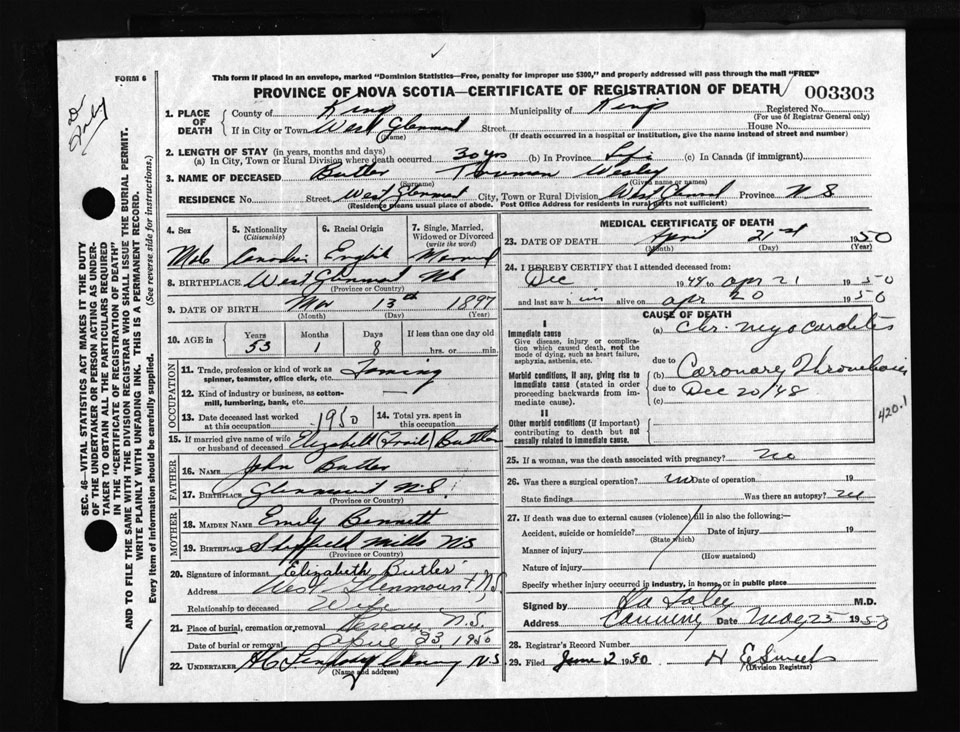 FORM 6
This form if placed in an envelope, marked "Dominion Statistics—Free, penalty for improper use $300," and properly addressed will pass through the mail "FREE"
PROVINCE OF NOVA SCOTIA—CERTIFICATE OF REGISTRATION OF DEATH 003303
1. PLACE OF DEATH County of Kings Municipality of Kings Registered No.
(For use of Registrar General only)
If in City or Town West Glenmont Street House No.
(Name) (If death occurred in a hospital or institution, give the name instead of street and number)
2. LENGTH OF STAY (in years, months and days)
(a) In City, Town or Rural Division where death occurred 30 yrs (b) In Province Life (c) In Canada (if immigrant)
3. NAME OF DECEASED Butler Wesley
(Surname) (Given name or names)
RESIDENCE No. Street West Glenmont City, Town or Rural Division West Glenmont Province N S
(Residence means usual place of abode. Post Office Address for residents in rural parts not sufficient)
4. Sex 5. Nationality (Citizenship) 6. Racial Origin 7. Single, Married, Widowed or Divorced (write the word)
Male Canadian English Married
8. BIRTHPLACE West Glenmont NS
(Province or Country)
9. DATE OF BIRTH Mar 13th 1897
(Month) (Day) (Year)
10. AGE in Years Months Days If less than one day old
53 1 8 hrs. or min.
OCCUPATION
11. Trade, profession or kind of work as spinner, teamster, office clerk, etc. Farming
12. Kind of industry or business, as cotton-mill, lumbering, bank, etc.
13. Date deceased last worked at this occupation 1950 14. Total yrs. spent in this occupation
15. If married give name of wife or husband of deceased Elizabeth Butler
FATHER
16. Name John Butler
17. Birthplace Glenmont N.S.
(Province or Country)
MOTHER
18. Maiden Name Emily Bennett
19. Birthplace Sheffield Mills NS
(Province or Country)
20. Signature of informant Elizabeth Butler
Address West Glenmount, N.S.
Relationship to deceased Wife
21. Place of burial, cremation or removal Pereau, N.S.
Date of burial or removal April 23, 1950
22. UNDERTAKER N.S
(Name and address)
MEDICAL CERTIFICATE OF DEATH
23. DATE OF DEATH April 21st 1950
(Month) (Day) (Year)
24. I HEREBY CERTIFY that I attended deceased from:
Dec 1948 to Apr 21 1950
and last saw him alive on Apr 20 1950
CAUSE OF DEATH
I
Immediate cause (a) Chr. Myocarditis
Give disease, injury or complication which caused death, not the mode of dying, such as heart failure, asphyxia, asthenia, etc.
due to
Morbid conditions, if any, giving rise to immediate cause (stated in order proceeding backwards from immediate cause).
(b) Coronary Thrombosis
due to Dec 20/48
(c)
420.1
II
Other morbid conditions (if important) contributing to death but not causally related to immediate cause.
25. If a woman, was the death associated with pregnancy? No
26. Was there a surgical operation? No Date of operation 19
State findings Was there an autopsy? No
27. If death was due to external causes (violence) fill in also the following:
Accident, suicide or homicide? Date of injury 19
(State which)
Manner of injury
(How sustained)
Nature of injury
Specify whether injury occurred in industry, in home or in public place
Signed by M.D.
Address Canning Date May 25 1950
28. Registrar's Record Number
29. Filed June 2 1950 H E Sweet
(Division Registrar)
SEC. 46—VITAL STATISTICS ACT MAKES IT THE DUTY
OF THE UNDERTAKER OR PERSON ACTING AS UNDER-
TAKER TO OBTAIN ALL THE PARTICULARS REQUIRED
IN THE "CERTIFICATE OF REGISTRATION OF DEATH"
AND TO FILE THE SAME WITH THE DIVISION REGISTRAR WHO SHALL ISSUE THE BURIAL PERMIT.
WRITE PLAINLY WITH UNFADING INK. THIS IS A PERMANENT RECORD.
Every item of information should be carefully supplied. (See reverse side for instructions.)